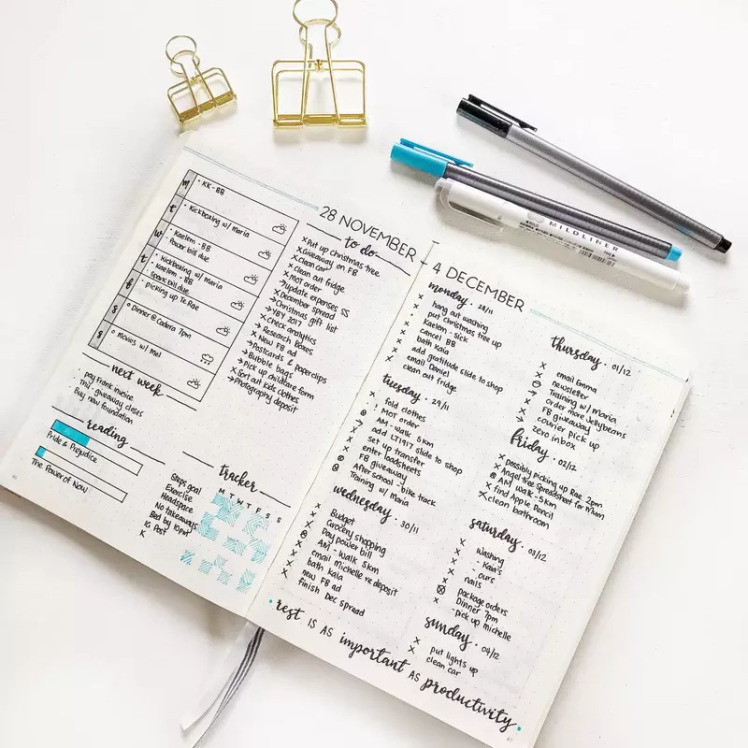 28 NOVEMBER
M
• KK - BB
t
• Kickboxing w/ Maria
W
• Kaelem - BB
Power bill due
t
• Kickboxing w/ maria
• Kaelem - BB
Spark bill due
f
• picking up Te Rae
S
• Dinner @ Cadera 7pm
S
• movies w/ Mel
next week
• pay Frank invoice
giveaway closes
Buy new foundation
reading
Pride & Prejudice
The Power of Now
to do
× Put up christmas tree
× Giveaway on FB
× Clean car
× Clean out fridge
× MOT order
× Update expenses SS
× December spread
→ Christmas gift list
→ YBY 2017
× Check analytics
→ Research boxes
× New FB ad
→ Postcards & paperclips
→ Bubble bags
→ Pick up childcare form
× Sort out kids clothes
→ Photography deposit
tracker
M T W T F S S
Steps goal
Exercise
Headspace
No takeaways
Bed by 10pm
IG Post
K
4 DECEMBER
monday • 28/11
× hang out washing
× put Christmas tree up
× Kaelem - sick
× cancel BB
× bath Kaia
× add gratitude slide to shop
× email Daniel
× clean out fridge
tuesday • 29/11
× fold clothes
! MOT order
AM - walk 5km
add LT1917 slide to shop
× set up transfer
× enter loadsheets
× FB giveaway
After school - bike track
Training w/ Maria
wednesday • 30/11
× Budget
× Grocery shopping
× Pay power bill
AM - walk 5km
× email michelle re deposit
× bath Kaia
× new FB ad
× finish Dec spread
thursday • 01/12
× email Emma
× newsletter
Training w/ maria
→ order more Jellybeans
× FB giveaway
× courier pick up
→ zero inbox
friday • 02/12
× possibly picking up Rae 2pm
× Angel tree spreadsheet for
AM walk - 5km
× find Apple Pencil
× clean bathroom
saturday • 03/12
× washing
× - Kaia's
× - ours
× nails
package orders
× Dinner 7pm
- pick up michelle
sunday • 04/12
× put lights up
× clean car
• rest IS AS important AS productivity •
MILDLINER